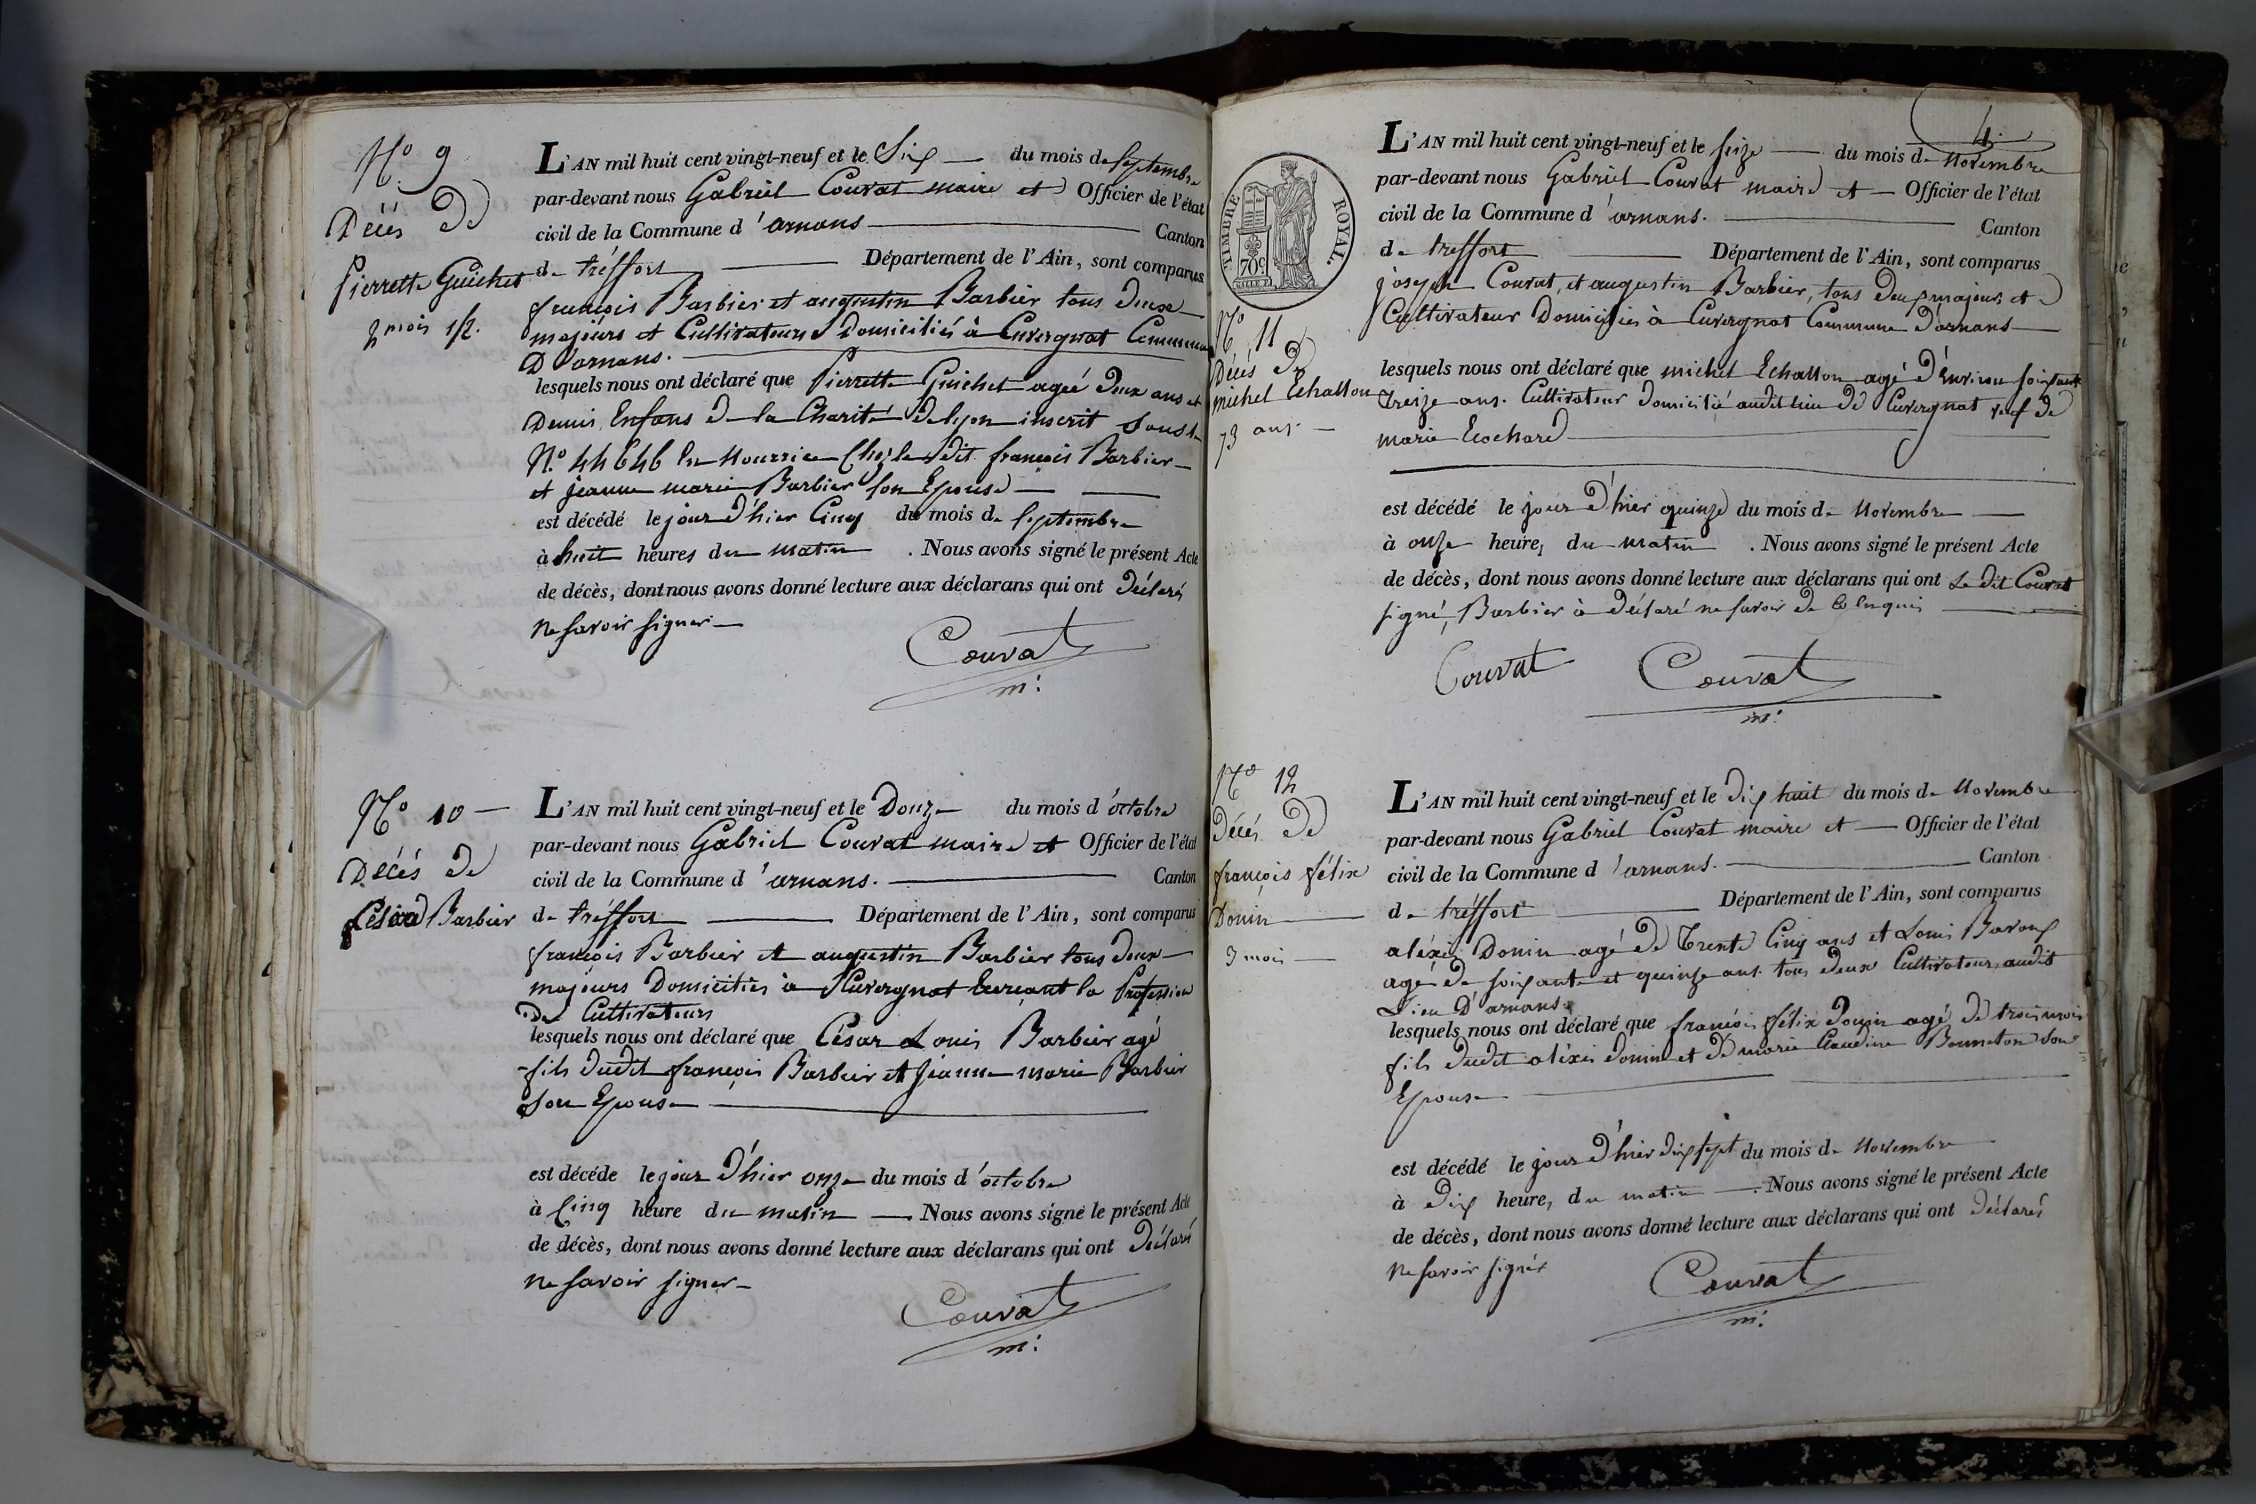 N.° 9
Décès de
Pierrette Guichet
2 mois 1/2.
L'AN mil huit cent vingt-neuf et le Six du mois de Septembre
par-devant nous Gabriel Couvat maire et Officier de l'état
civil de la Commune d'arnans Canton
de tréffort Département de l'Ain, sont comparus
françois Barbier et augustin Barbier tous deux
majeurs et Cultivateurs Domiciliés à Cuvergnat Commune
D'arnans.
lesquels nous ont déclaré que Pierrette Guichet agée deux ans et
Demi Enfans de la Charité de lyon inscrit sous le
N.° 44646 En Nourrice Chez le dit françois Barbier
et jeanne marie Barbier son Epouse
est décédé le jour d'hier Cinq du mois de Septembre
à huit heures du matin . Nous avons signé le présent Acte
de décès, dont nous avons donné lecture aux déclarans qui ont Déclarés
Ne savoir signer
Couvat
m:
N.° 10
Décés de
César Barbier
L'AN mil huit cent vingt-neuf et le Douze du mois d'octobre
par-devant nous Gabriel Couvat maire et Officier de l'état
civil de la Commune d'arnans. Canton
de tréffort Département de l'Ain, sont comparus
françois Barbier et augustin Barbier tous deux
majeurs Domiciliés à Cuvergnat la Profession
De Cultivateurs
lesquels nous ont déclaré que César Louis Barbier agé
fils dudit françois Barbier et Jeanne marie Barbier
son Epouse
est décéde le jour d'hier onze du mois d'octobre
à Cinq heure du matin Nous avons signé le présent Acte
de décès, dont nous avons donné lecture aux déclarans qui ont Déclaré
Ne savoir signer
Couvat
m:
4
TIMBRE ROYAL.
70c
N.° 11
Décés de
michel Echallon
73 ans
L'AN mil huit cent vingt-neuf et le seize du mois de Novembre
par-devant nous Gabriel Couvat maire et Officier de l'état
civil de la Commune d'arnans. Canton
de treffort Département de l'Ain, sont comparus
joseph Couvat, et augustin Barbier, tous deux majeurs et
Cultivateur Domiciliés à Cuvergnat Commune D'arnans
lesquels nous ont déclaré que michel Echallon agé d'Environ soixante
Treize ans. Cultivateur Domicilié audit lieu de Cuvergnat veuf de
marie Ecochard
est décédé le jour d'hier quinze du mois de Novembre
à onze heures du matin . Nous avons signé le présent Acte
de décès, dont nous avons donné lecture aux déclarans qui ont Le dit Couvat
signé, Barbier à déclaré ne savoir de ce Enquis
Couvat Couvat
m:
N.° 12
Décés de
françois félix
Donin
3 mois
L'AN mil huit cent vingt-neuf et le dix huit du mois de Novembre
par-devant nous Gabriel Couvat maire et Officier de l'état
civil de la Commune d'arnans. Canton
de tréffort Département de l'Ain, sont comparus
aléxis Donin agé de Trente Cinq ans et Louis
agé de soixante et quinze ans tous deux Cultivateurs audit
Lieu D'arnans
lesquels nous ont déclaré que françois félix Donin agé de trois mois
fils dudit aléxis donin et de marie Claudine son
Epouse
est décédé le jour d'hier dix sept du mois de Novembre
à dix heures du matin . Nous avons signé le présent Acte
de décès, dont nous avons donné lecture aux déclarans qui ont déclarés
Ne savoir signér
Couvat
m: